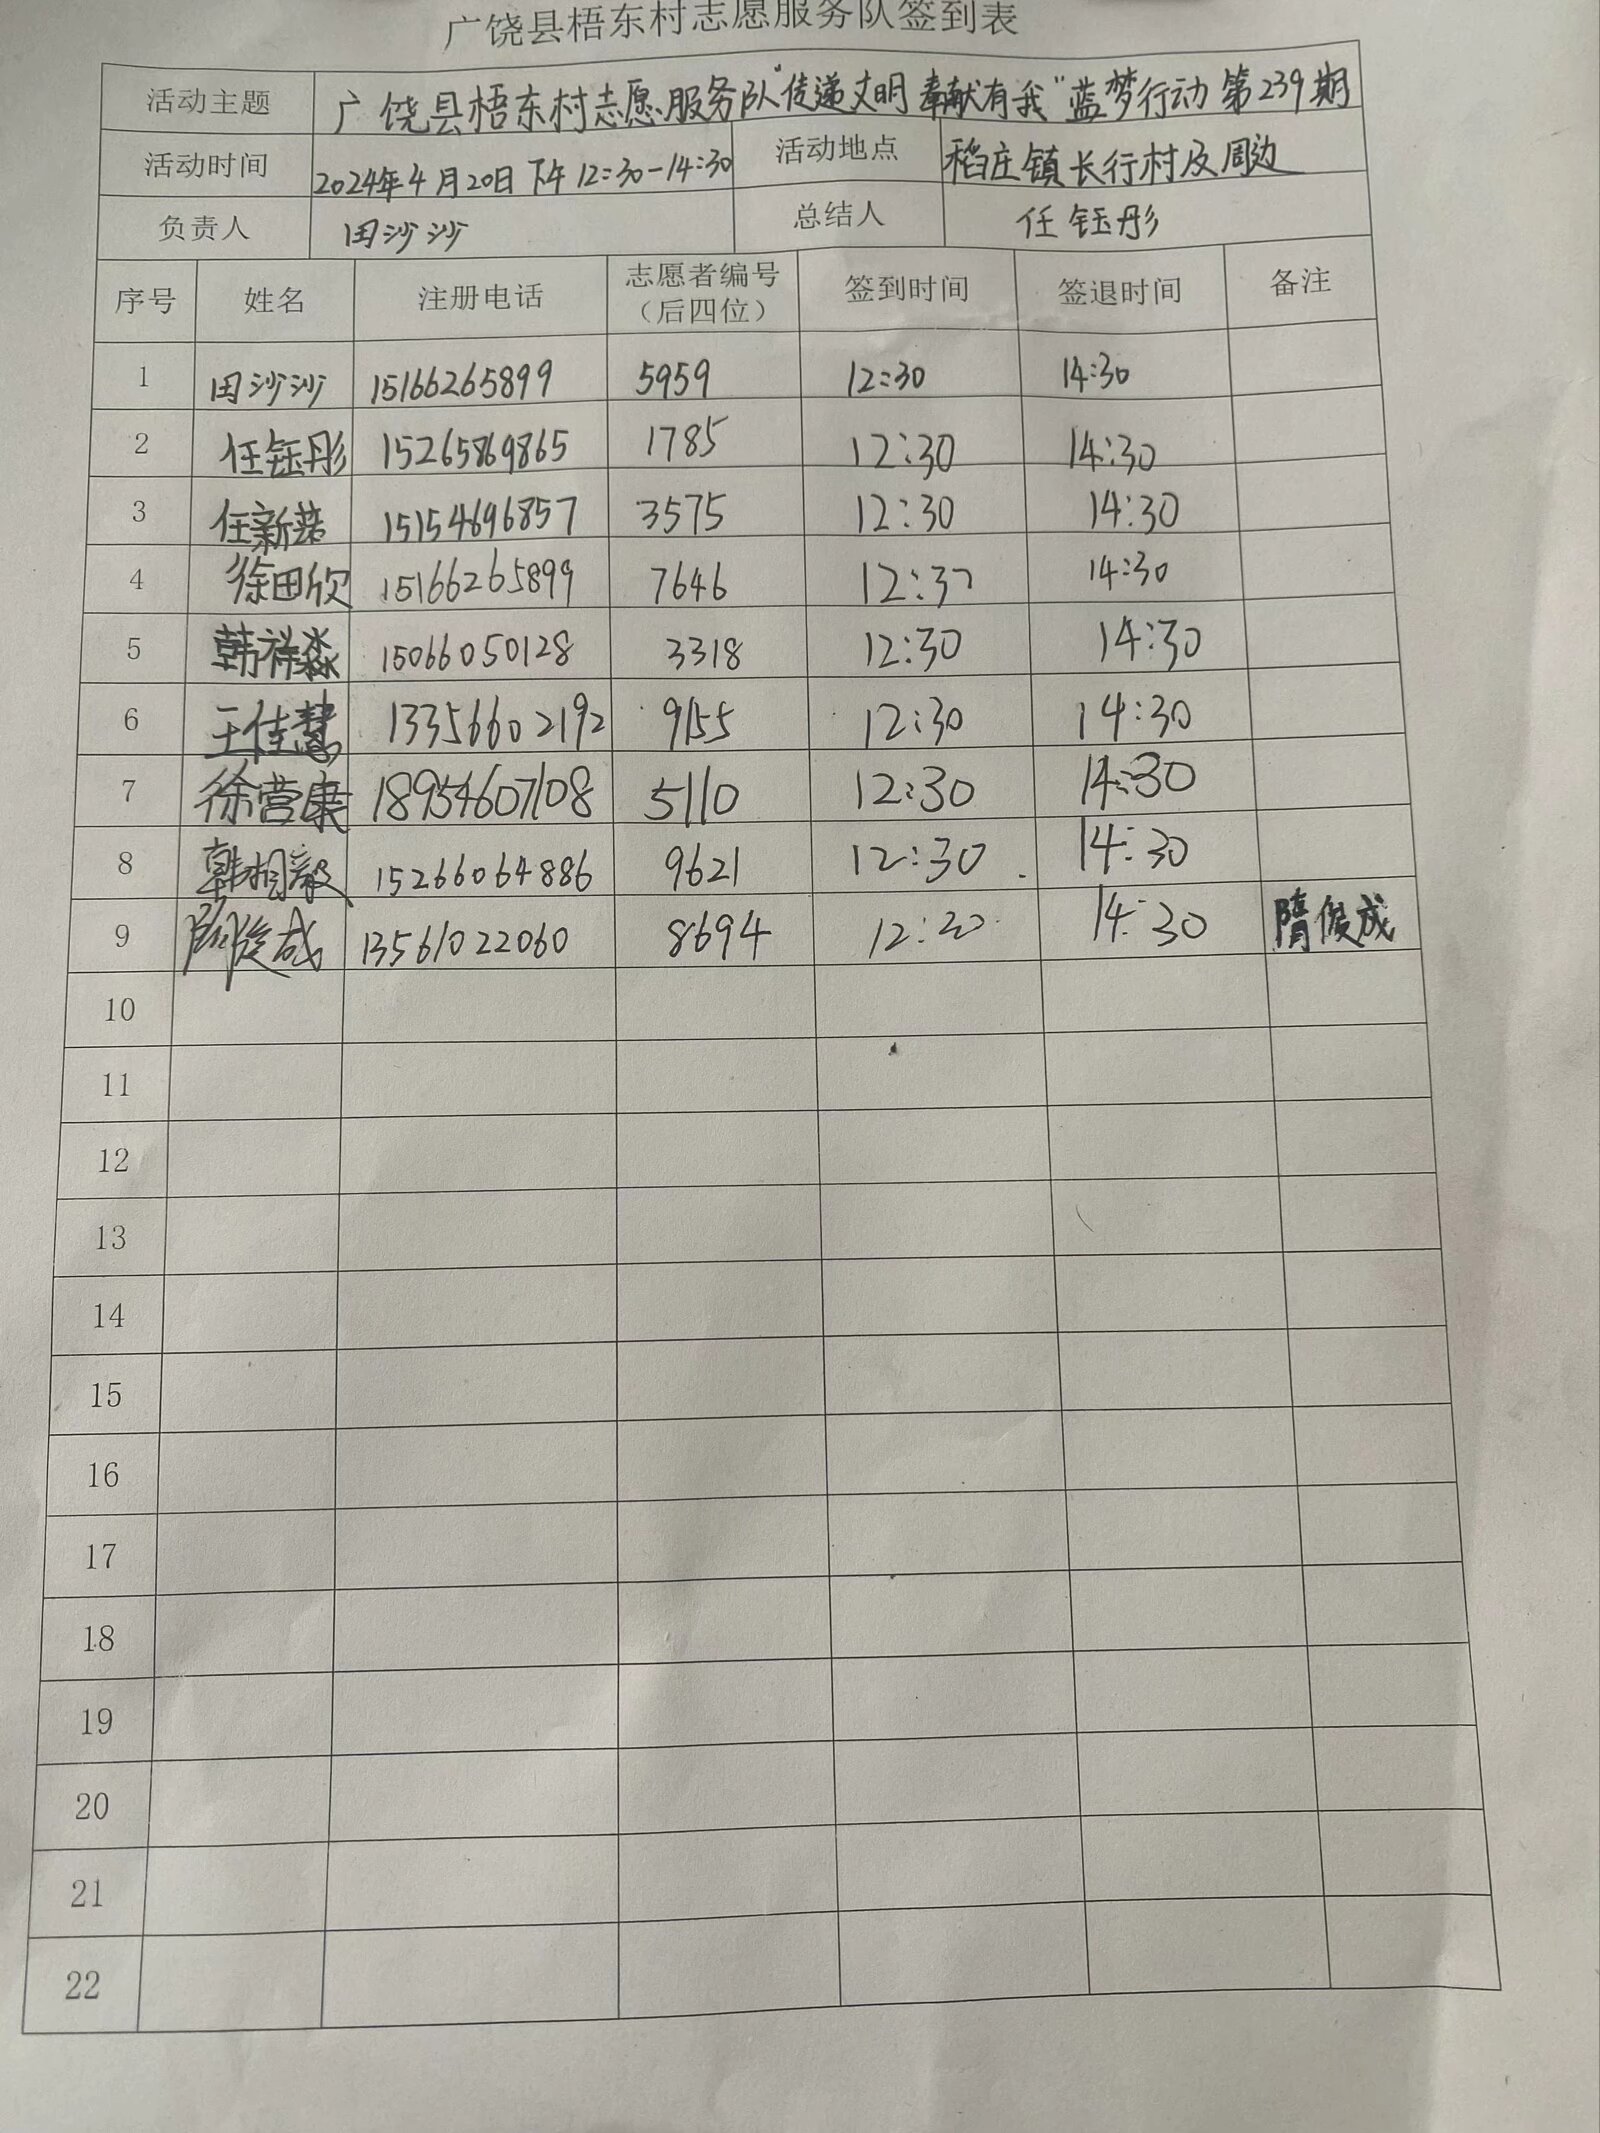 广饶县梧东村志愿服务队签到表
活动主题 广饶县梧东村志愿服务队"传递文明 奉献有我"蓝梦行动第239期
活动时间 2024年4月20日下午12:30-14:30 活动地点 稻庄镇长行村及周边
负责人 田沙沙 总结人 任钰彤
序号 姓名 注册电话 志愿者编号 签到时间 签退时间 备注
（后四位）
1 田沙沙 15166265899 5959 12:30 14:30
2 任钰彤 15265869865 1785 12:30 14:30
3 任新 15154696857 3575 12:30 14:30
4 徐田欣 15166265899 7646 12:30 14:30
5 韩祥淼 15066050128 3318 12:30 14:30
6 王佳慧 13356602192 9155 12:30 14:30
7 徐营康 18954607108 5110 12:30 14:30
8 韩相毅 15266064886 9621 12:30 14:30
9 隋俊成 13561022060 8694 12:30 14:30 隋俊成
10
11
12
13
14
15
16
17
18
19
20
21
22